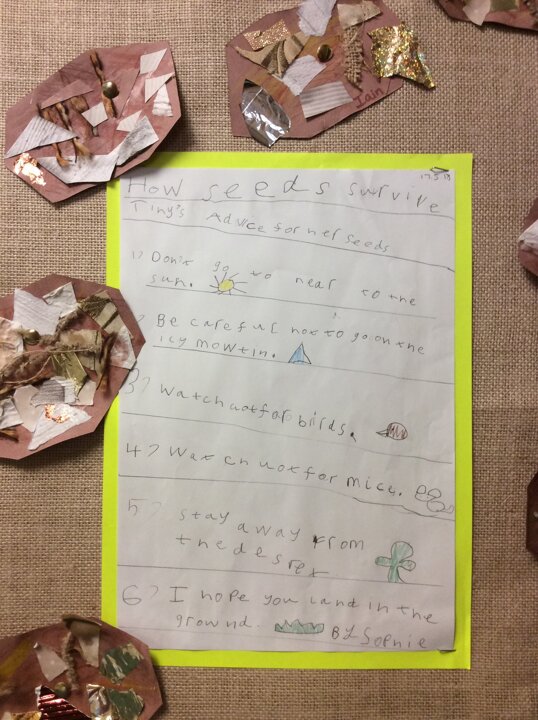 17.5.18
Iain
How seeds survive
Tiny's Advice for her seeds
1) Don't go to near to the
sun.
2) Be careful not to go on the
icy mowtin.
3) Watch uot for birds.
4) Watch uot for mice.
5) stay away from
the desret.
6) I hope you land in the
grownd. By Sophie